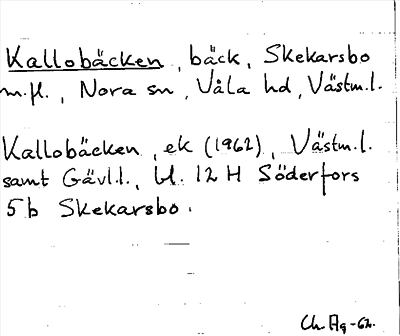 Kallobäcken, bäck, Skekarsbo
m.fl., Nora sn, Våla hd, Västm.l.
Kallobäcken, ek (1962), Västm.l.
samt Gävl.l., bl. 12 H Söderfors
5b Skekarsbo.
Ch. Ag-62.